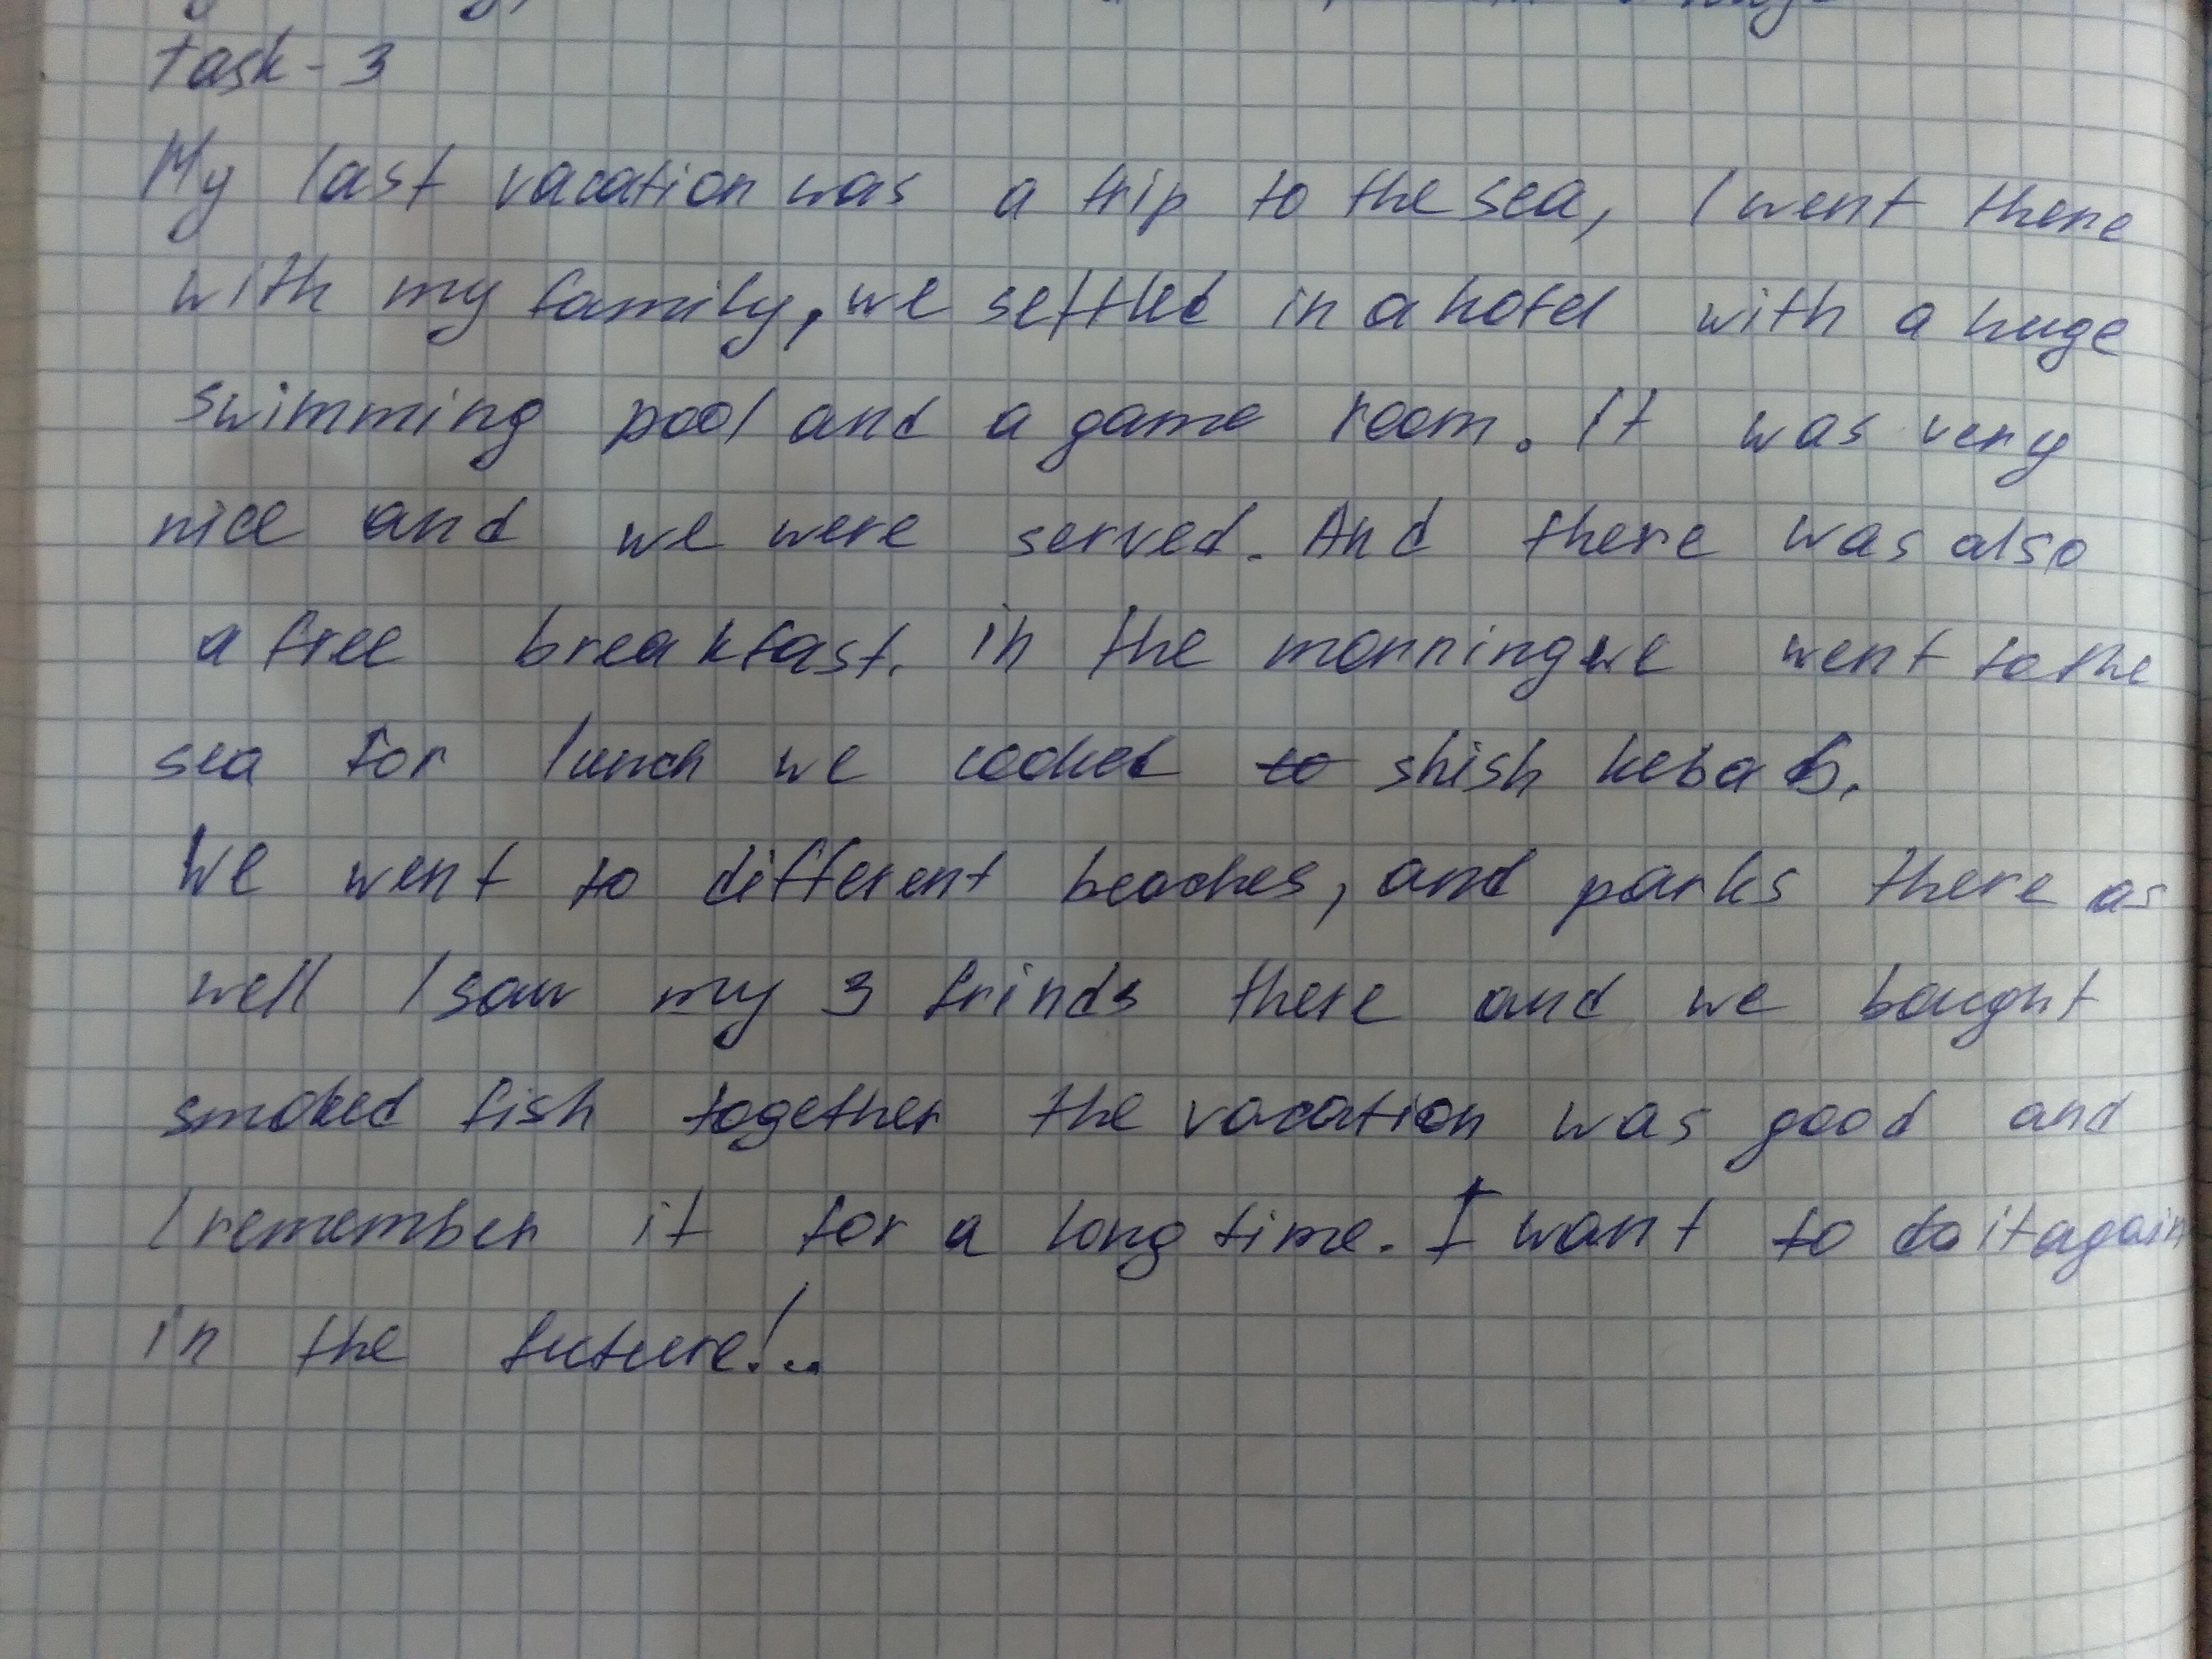 task - 3
My last vacation was a trip to the sea, I went there
with my family, we settled in a hotel with a huge
swimming pool and a game room. It was very
nice and we were served. And there was also
a free breakfast. in the morning we went to the
sea for lunch we cooked to shish kebab.
We went to different beaches, and parks there as
well I saw my 3 frinds there and we bought
smoked fish together the vacation was good and
I remember it for a long time. I want to do it again
in the future!..